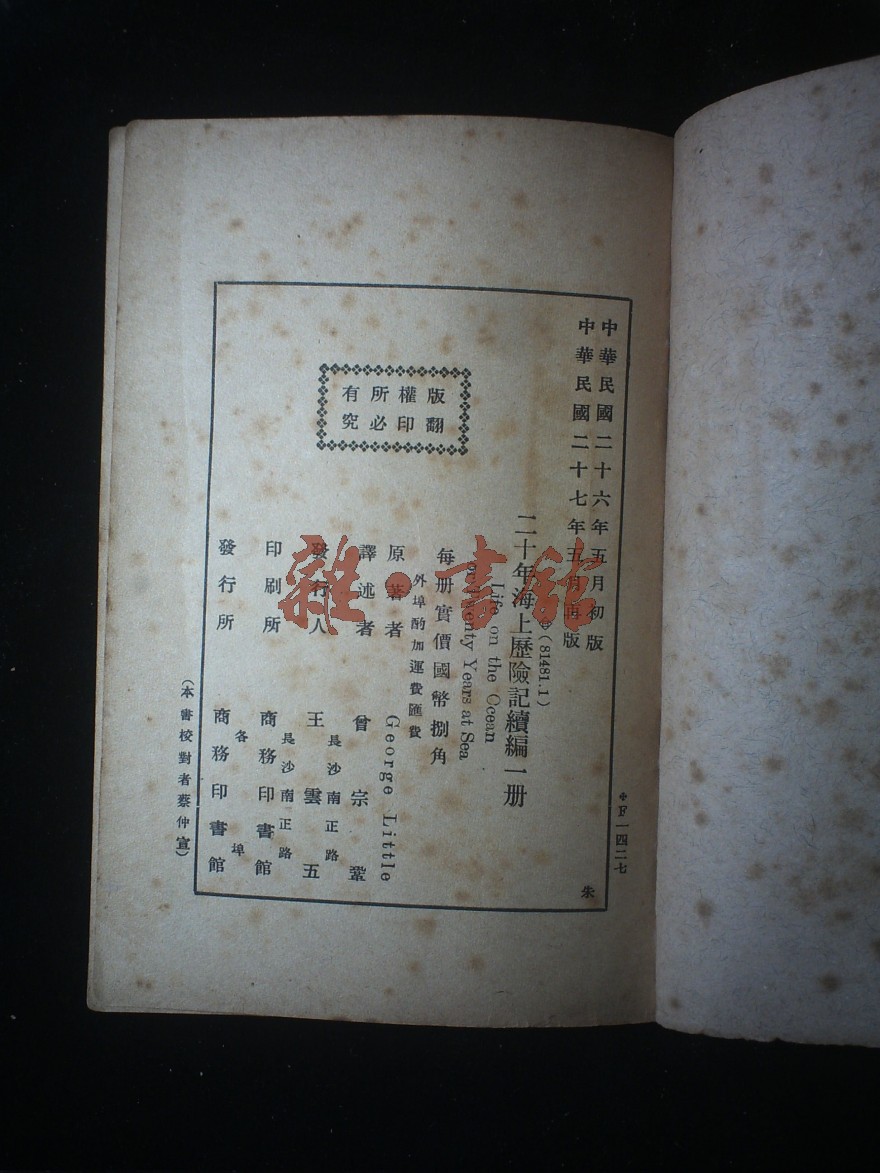 ＊F一四二七
中華民國二十六年五月初版
中華民國二十七年五月再版
(81481.1)
二十年海上歷險記續編一册
Life on the Ocean
or Twenty Years at Sea
每册實價國幣捌角
外埠酌加運費匯費
版權所有
翻印必究
原著者 George Little
譯述者 曾宗鞏
發行人 王雲五
長沙南正路
印刷所 商務印書館
長沙南正路
發行所 商務印書館
各埠
(本書校對者蔡仲宣)
朱
雜·書館